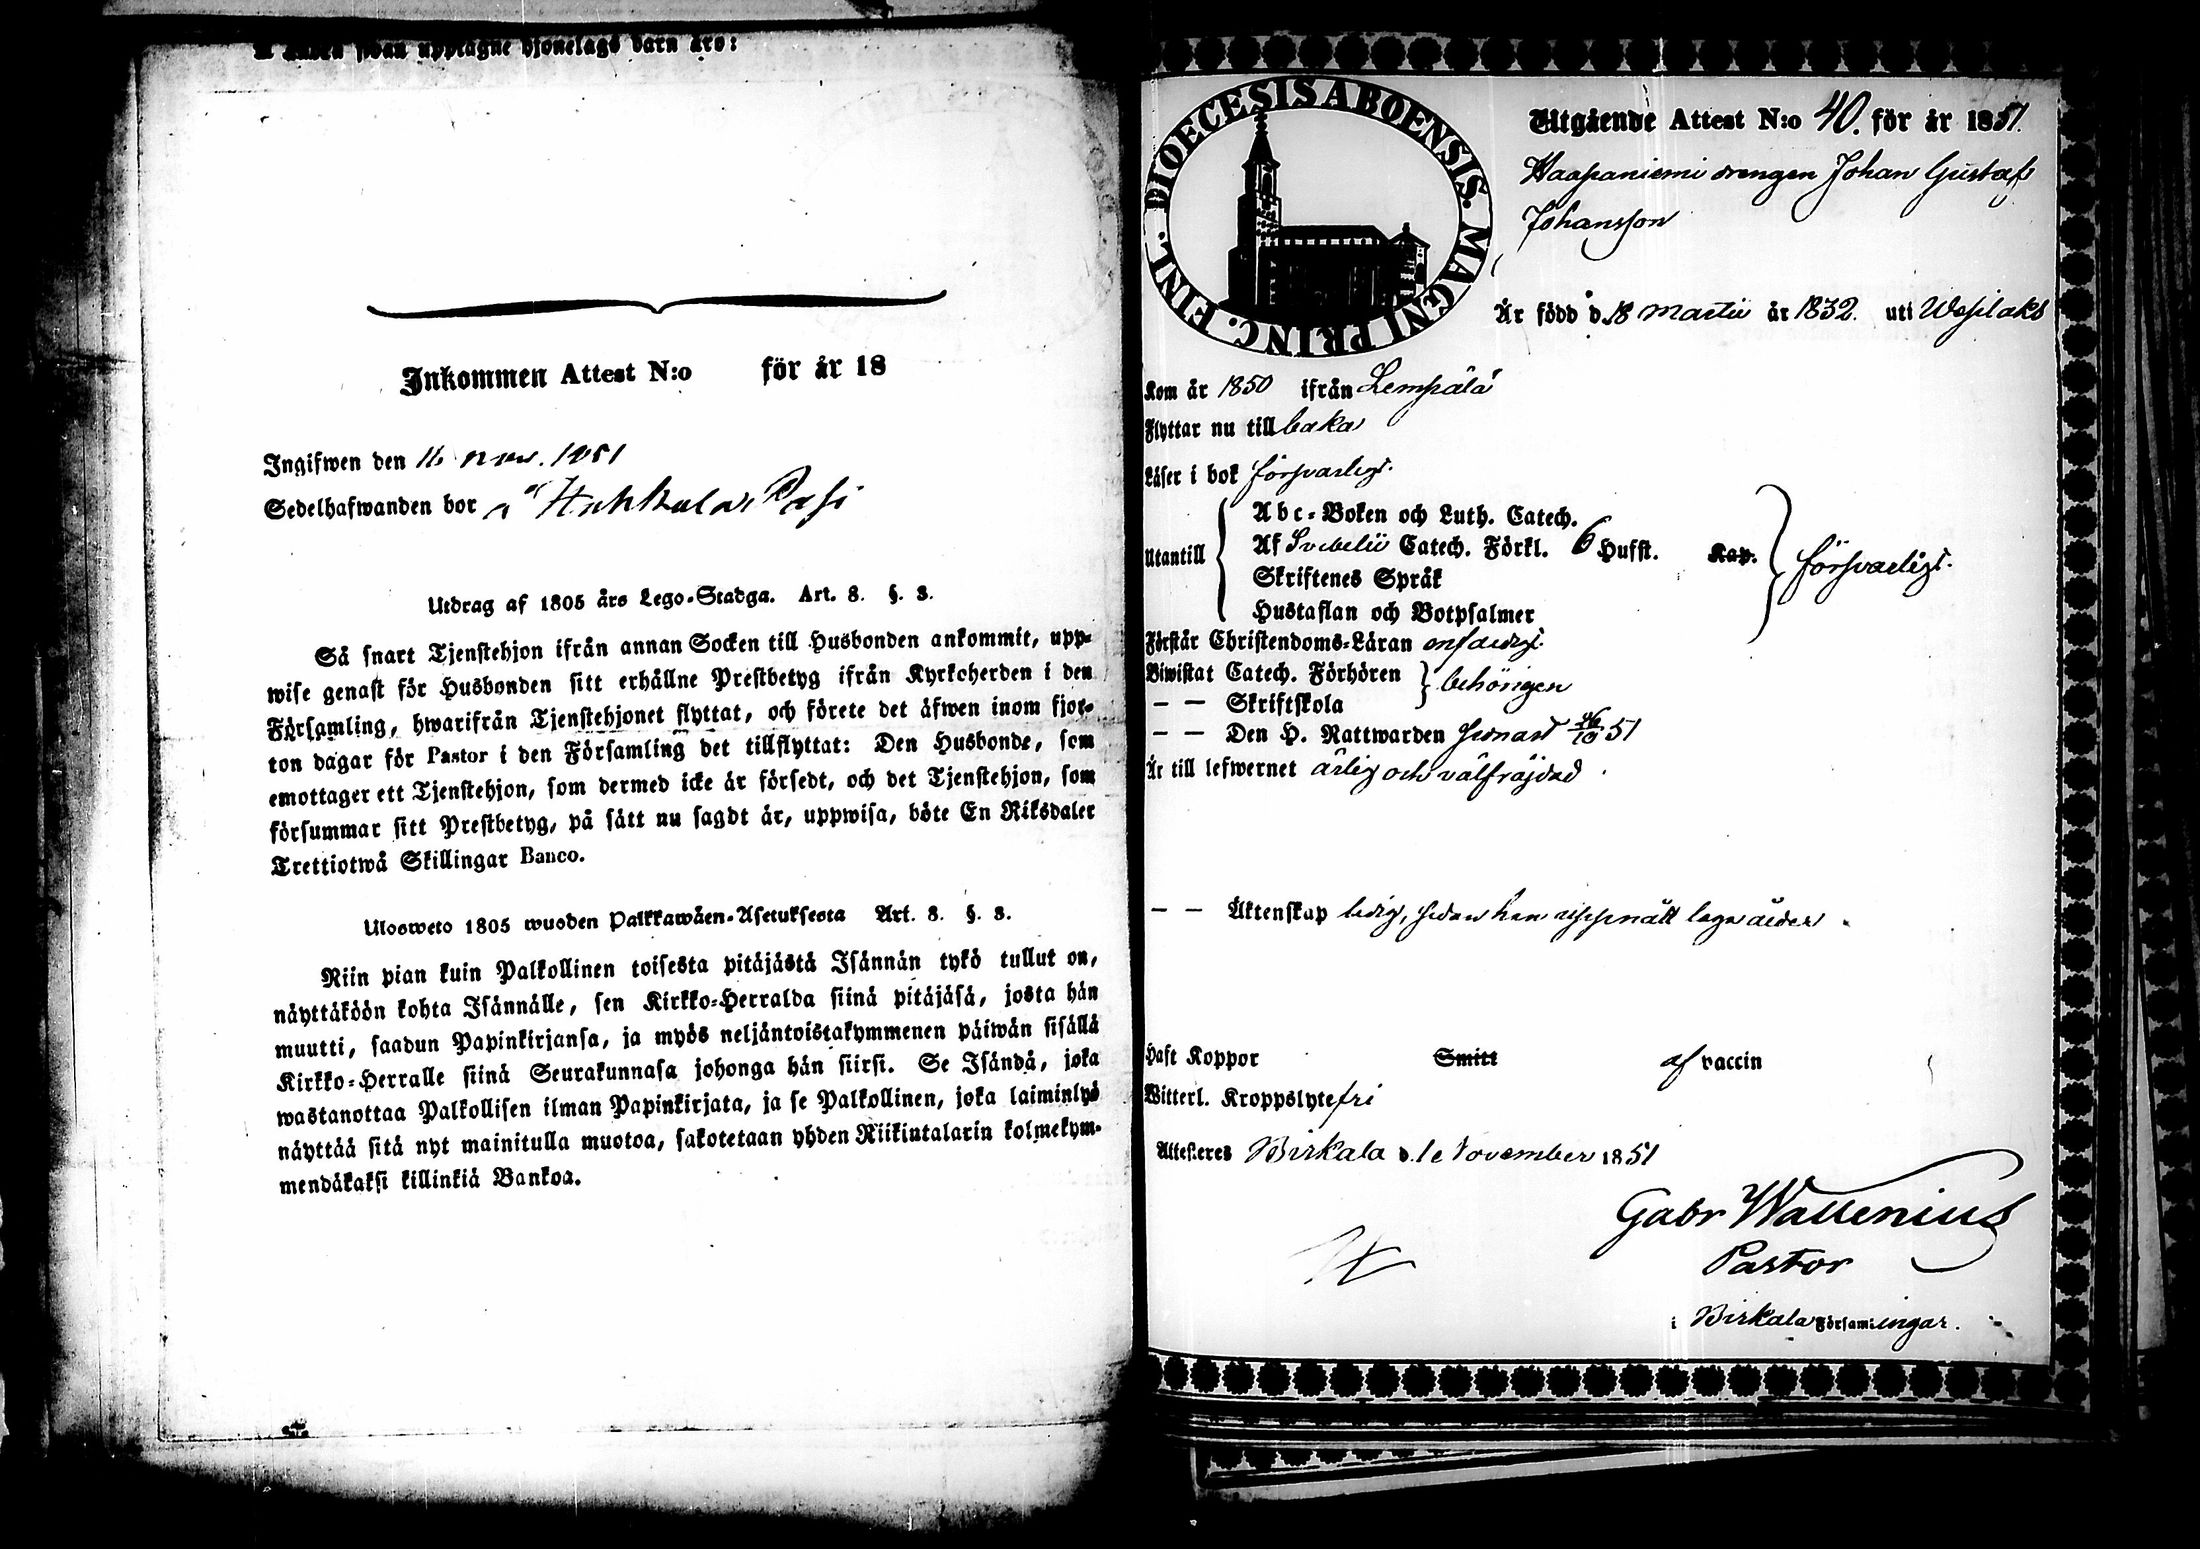 upptagne hjonelags barn äro:
Inkommen Attest N:o för år 18
Ingifwen den 16 nov. 1851
Sedelhafwanden bor å
Utdrag af 1805 års Lego-Stadga. Art. 8. §. 3.
Så snart Tjenstehjon ifrån annan Socken till Husbonden ankommit, upp-
wise genast för Husbonden sitt erhållne Prestbetyg ifrån Kyrkoherden i den
Församling, hwarifrån Tjenstehjonet flyttat, och förete det äfwen inom fjor-
ton dagar för Pastor i den Församling det tillflyttat: Den Husbonde, som
emottager ett Tjenstehjon, som dermed icke är försedt, och det Tjenstehjon, som
försummar sitt Prestbetyg, på sätt nu sagdt är, uppwisa, böte En Riksdaler
Trettiotwå Skillingar Banco.
Ulosweto 1805 wuoden Palkkawäen-Asetuksesta Art. 8. §. 3.
Niin pian kuin Palkollinen toisesta pitäjästä Isännän tykö tullut on,
näyttäköön kohta Isännälle, sen Kirkko-Herralda siinä pitäjäsä, josta hän
muutti, saadun Papinkirjansa, ja myös neljäntoistakymmenen päiwän sisällä
Kirkko-Herralle siinä Seurakunnasa johonga hän siirsi. Se Isändä, joka
wastanottaa Palkollisen ilman Papinkirjata, ja se Palkollinen, joka laiminlyö
näyttää sitä nyt mainitulla muotoa, sakotetaan yhden Riikintalarin kolmekym-
mendäkaksi killinkiä Bankoa.
DIOECESIS ABOENSIS. MAGNI PRINC. FINL.
Utgående Attest N:o 40. för år 1851.
Haapaniemi drengen Johan Gustaf
Johansson
Är född d. 18 Martii år 1832. uti Wesilaks
Kom år 1850 ifrån Lempälä
Flyttar nu tillbaka
Läser i bok försvarligt.
Abc-Boken och Luth. Catech.
Utantill Af Svebelii Catech. Förkl. 6 Hufst. Kap. försvarligt.
Skriftenes Språk
Hustaflan och Botpsalmer
Förstår Christendoms-Läran enfaldigt.
Biwistat Catech. Förhören behörigen
— — Skriftskola
— — Den H. Nattwarden senast 26/10 51
Är till lefwernet ärlig och välfräjdad.
— — Äktenskap ledig, sedan han uppnått laga ålder.
Haft Koppor Smitt af vaccin
Witterl. Kroppslyte fri
Attesteres Birkala d. 1 November 1851
Gabr Wallenius
Pastor
i Birkala Församlingar.